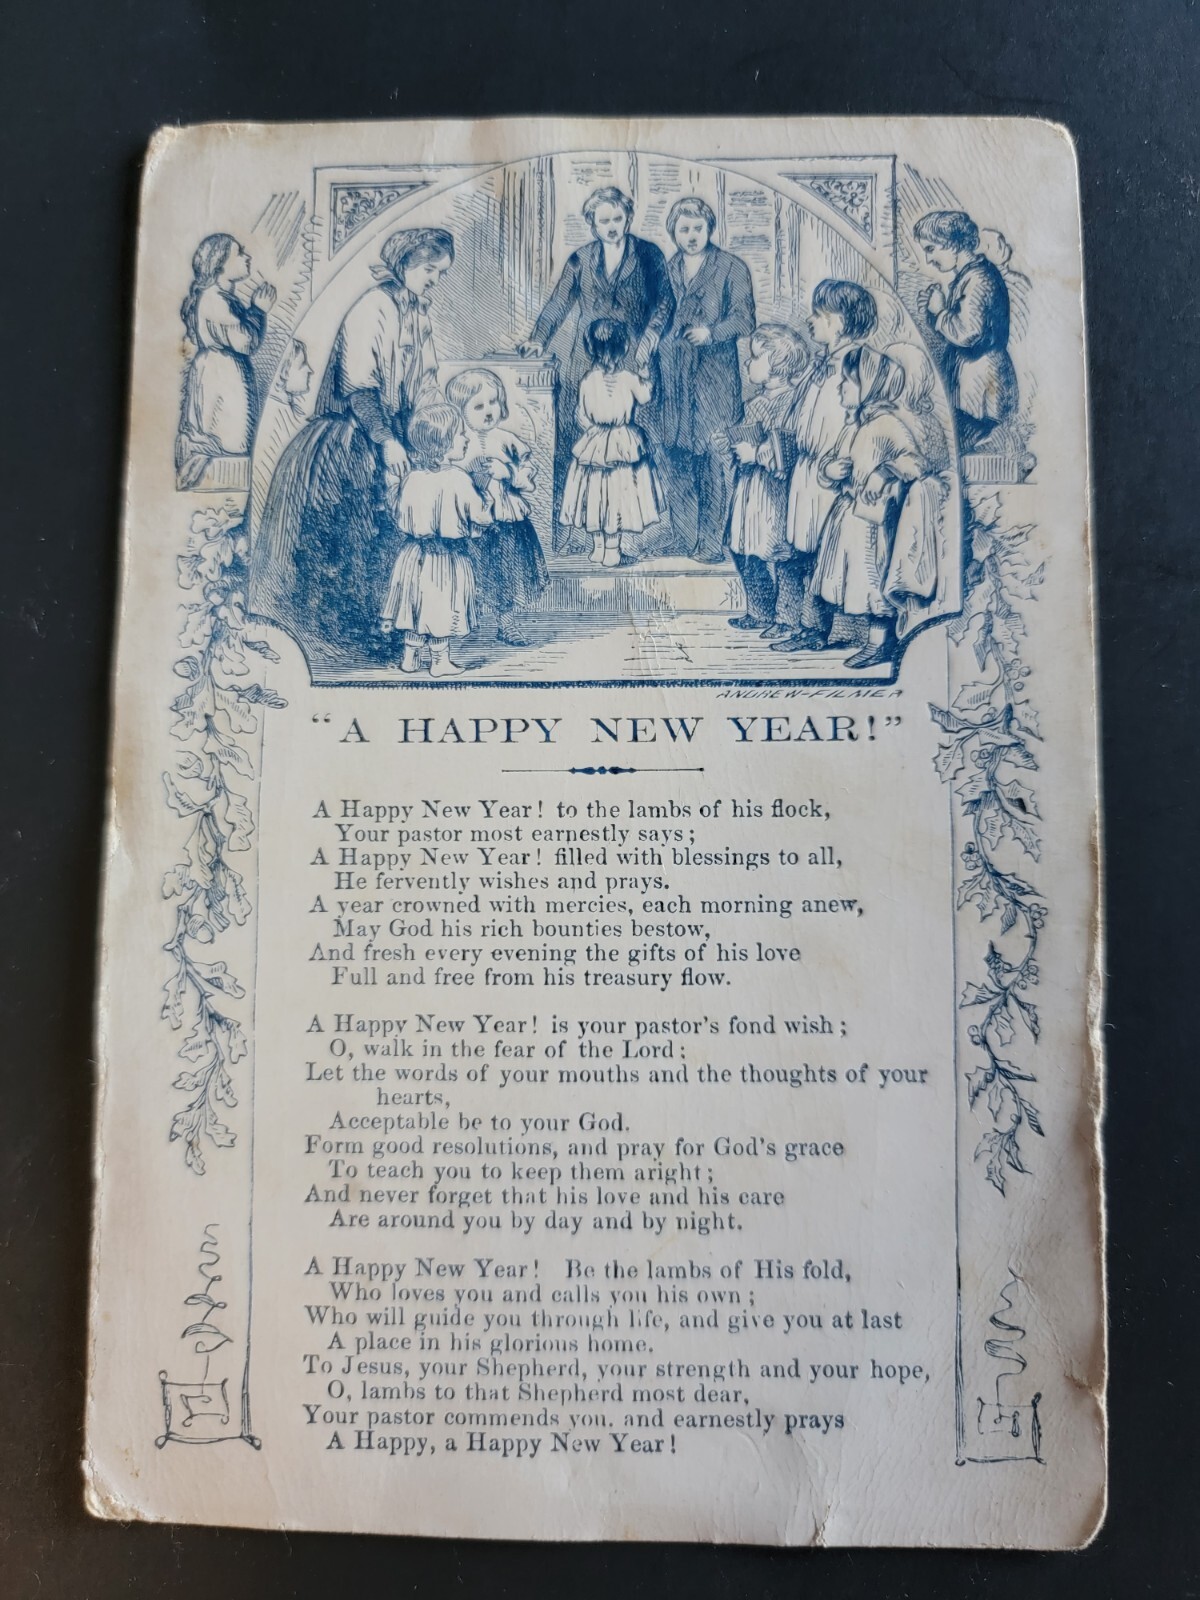 ANDREW-FILMER
"A HAPPY NEW YEAR!"
A Happy New Year! to the lambs of his flock,
Your pastor most earnestly says;
A Happy New Year! filled with blessings to all,
He fervently wishes and prays.
A year crowned with mercies, each morning anew,
May God his rich bounties bestow,
And fresh every evening the gifts of his love
Full and free from his treasury flow.
A Happy New Year! is your pastor's fond wish;
O, walk in the fear of the Lord;
Let the words of your mouths and the thoughts of your
hearts,
Acceptable be to your God.
Form good resolutions, and pray for God's grace
To teach you to keep them aright;
And never forget that his love and his care
Are around you by day and by night.
A Happy New Year! Be the lambs of His fold,
Who loves you and calls you his own;
Who will guide you through life, and give you at last
A place in his glorious home.
To Jesus, your Shepherd, your strength and your hope,
O, lambs to that Shepherd most dear,
Your pastor commends you, and earnestly prays
A Happy, a Happy New Year!